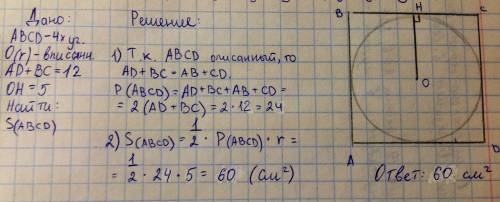 Дано:
ABCD-4х уг.
O(r)-вписанн.
AD+BC=12
OH=5
Найти:
S(ABCD)
Решение:
1) Т.к. ABCD описанный, то
AD+BC=AB+CD.
P(ABCD)=AD+BC+AB+CD=
=2(AD+BC)=2·12=24
2) S(ABCD)=1/2·P(ABCD)·r=
=1/2·24·5=60 (см²)
B H C
O
A D
Ответ: 60 см²